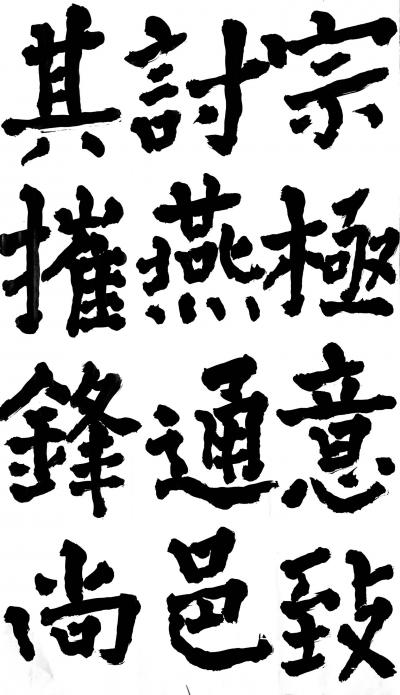 宗極意致
討燕通邑
其摧鋒尚